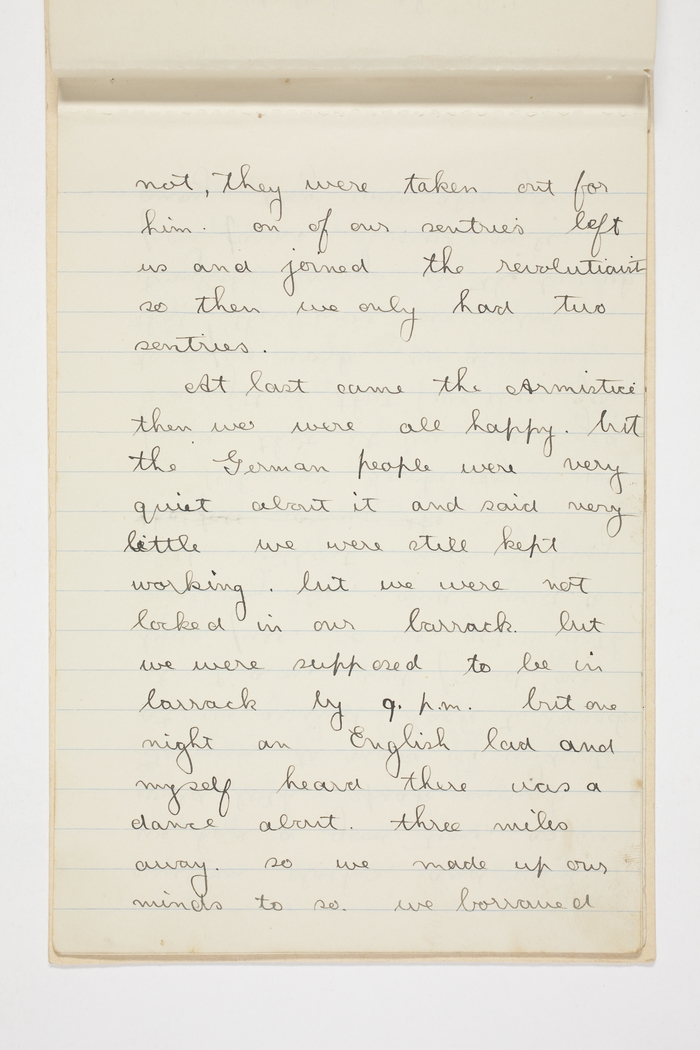 not, they were taken out for
him. on of our sentries left
us and joined the revolutiont
so then we only had two
sentries.
At last came the Armistice
then we were all happy. but
the German people were very
quiet about it and said very
little we were still kept
working. but we were not
locked in our barrack. but
we were supposed to be in
barrack by 9. p.m. but one
night an English lad and
myself heard there was a
dance about. three miles
away. so we made up our
minds to so. we borrowed